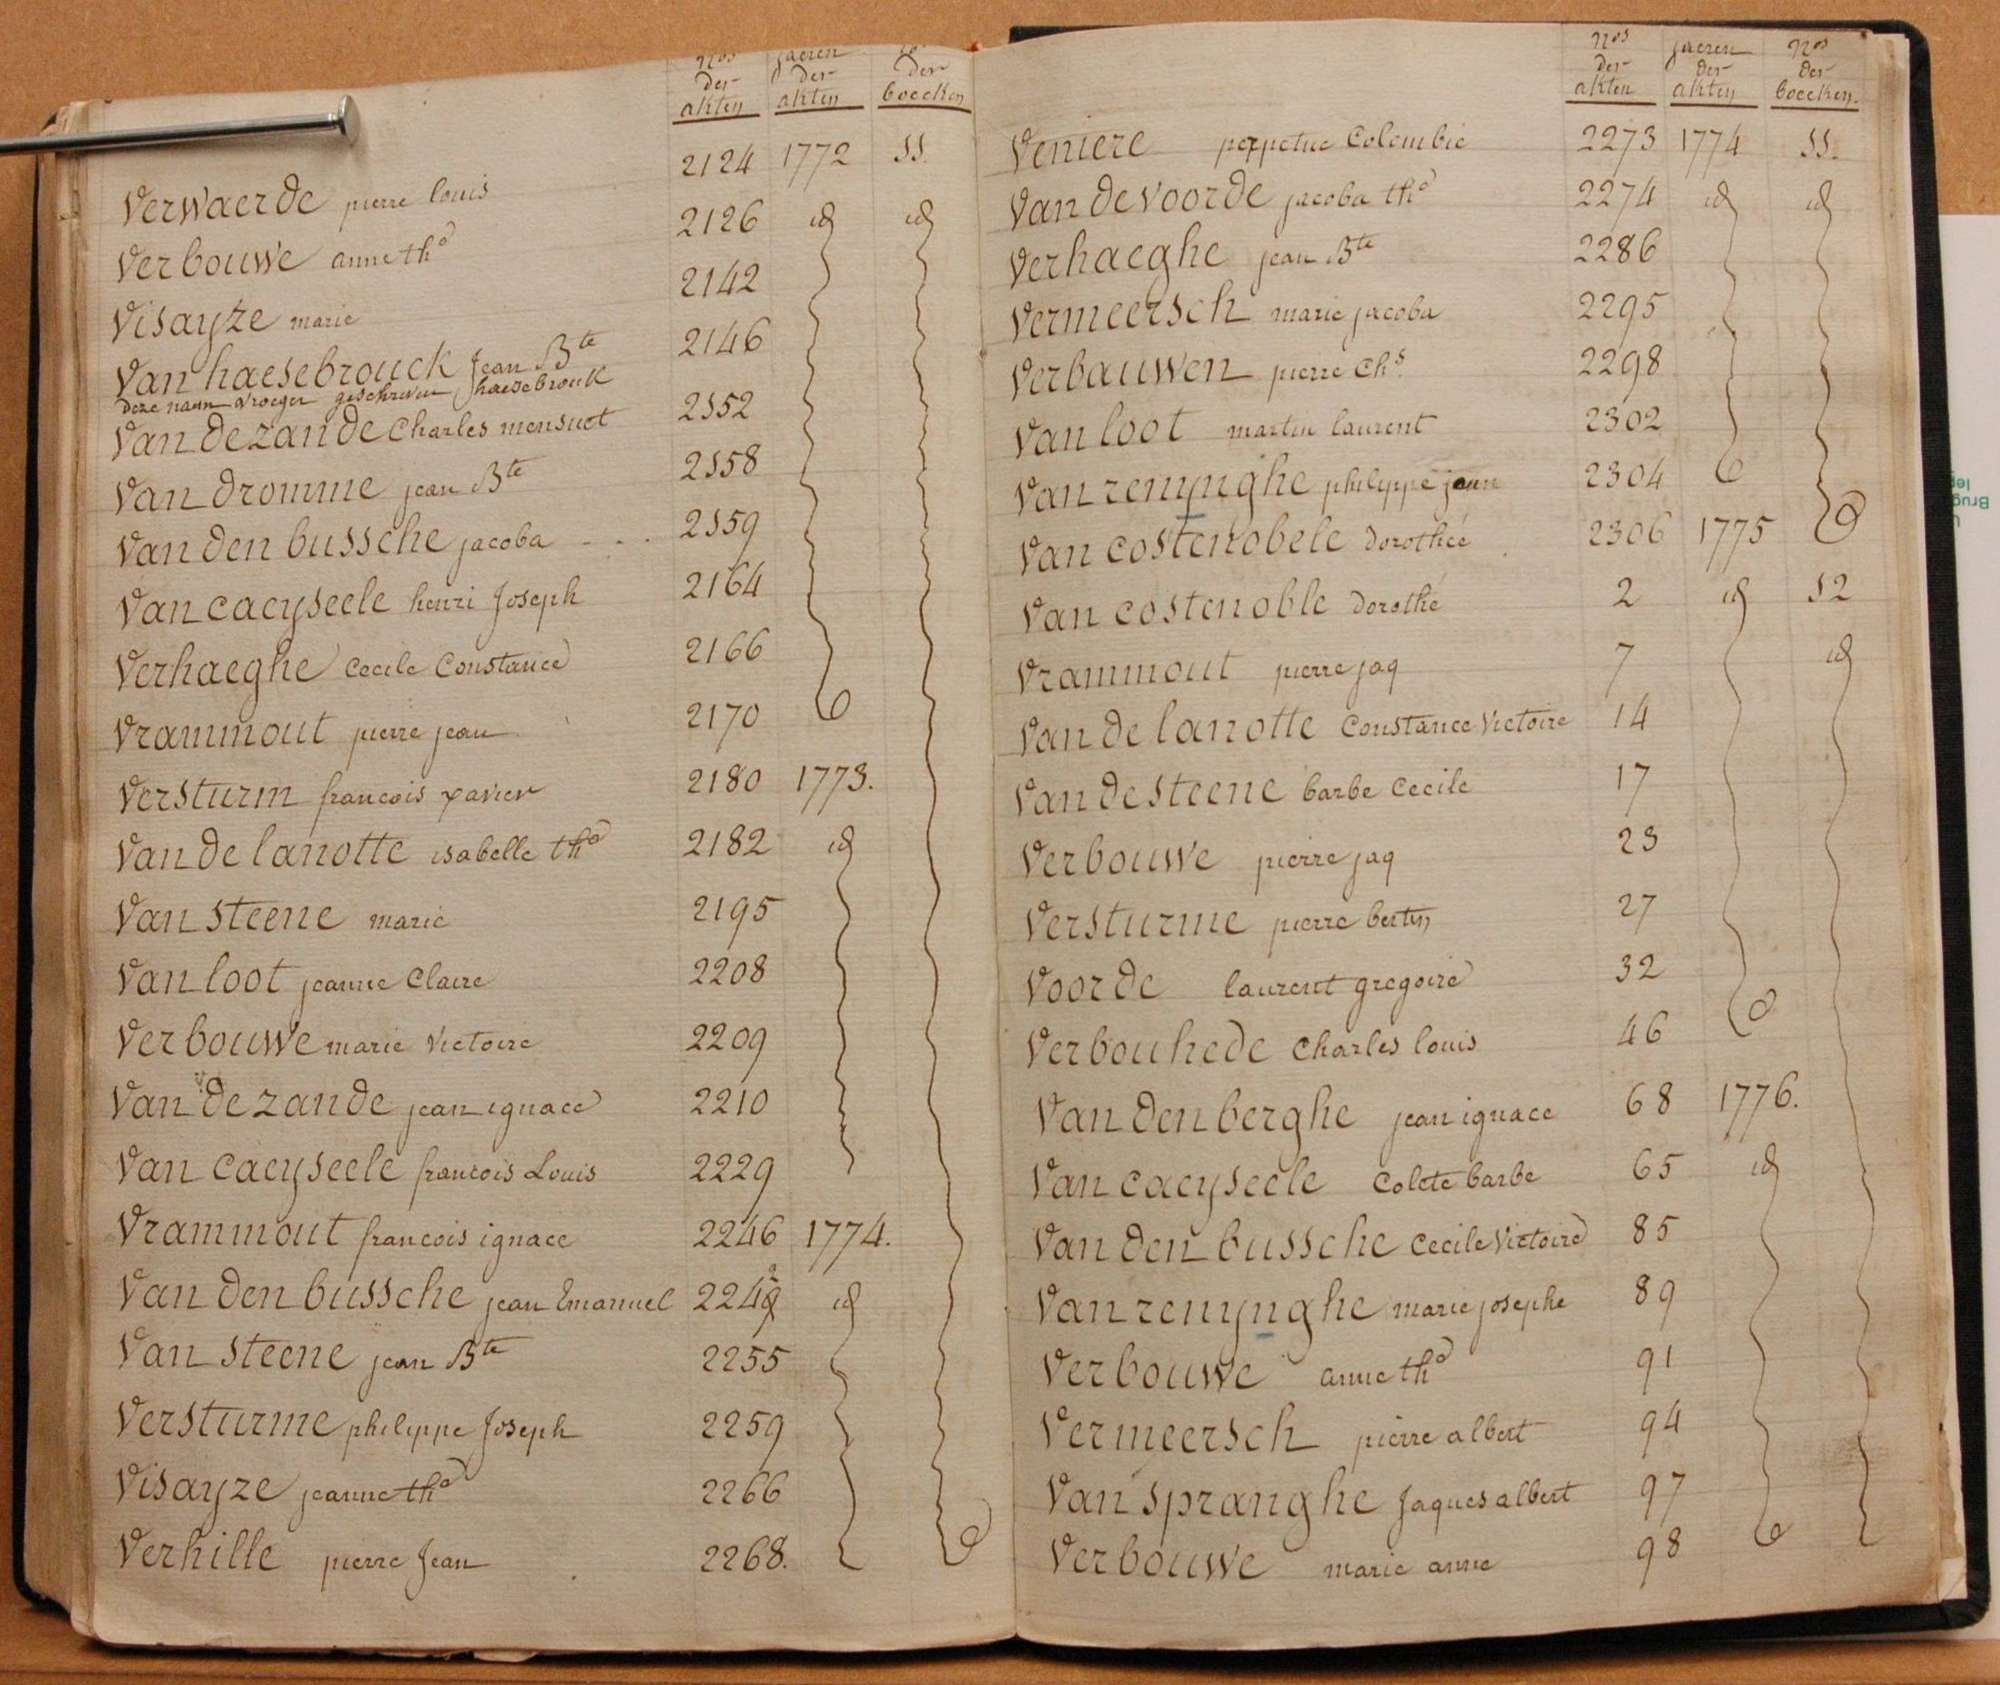 nos jaeren
der der der
akten akten boecken
Verwaerde pierre louis 2124 1772 SS.
Verbouwe anne thd 2126 id id
Visayze marie 2142
Van haesebrouck Jean Bte 2146
deze naam vroeger geschreven haesebrouk
Van de zande Charles mensuet 2152
Van dromme jean Bte 2158
Van den bussche jacoba - - . 2159
Van caeyseele henri Joseph 2164
Verhaeghe Cecile Constance 2166
Vrammout pierre jean 2170
Versturm francois xavier 2180 1773.
Van de lanotte isabelle thd 2182 id
Van steene marie 2195
Van loot jeanne Claire 2208
Verbouwe marie Victoire 2209
Van de zande jean ignace 2210
Van caeyseele francois Louis 2229
Vrammout francois ignace 2246 1774.
Van den bussche jean Emanuel 2249 id
Van steene jean Bte 2255
Versturme philippe Joseph 2259
Visayze jeanne thd 2266
Verhille pierre Jean 2268.
nos jaeren nos
der der der
akten akten boecken.
Veniere perpetue Colombie 2273 1774 SS.
Van de voorde jacoba thd 2274 id id
Verhaeghe jean Bte 2286
Vermeersch marie jacoba 2295
Verbauwen pierre Chs. 2298
Van loot martin laurent 2302
Van renynghe philippe jean 2304
Van costenobele dorothée 2306 1775
Van costenoble dorothé 2 id 52
Vrammout pierre jaq 7 id
Van de lanotte Constance Victoire 14
Van de steene barbe Cecile 17
Verbouwe pierre jaq 23
Versturme pierre bertin 27
Voorde laurent gregoire 32
Verbouhede Charles louis 46
Van den berghe jean ignace 68 1776.
Van caeyseele Colete barbe 65 id
Van den bussche Cecile Victoire 85
Van renynghe marie josephe 89
Verbouwe anne thd 91
Vermeersch pierre albert 94
Van spranghe Jaques albert 97
Verbouwe marie anne 98